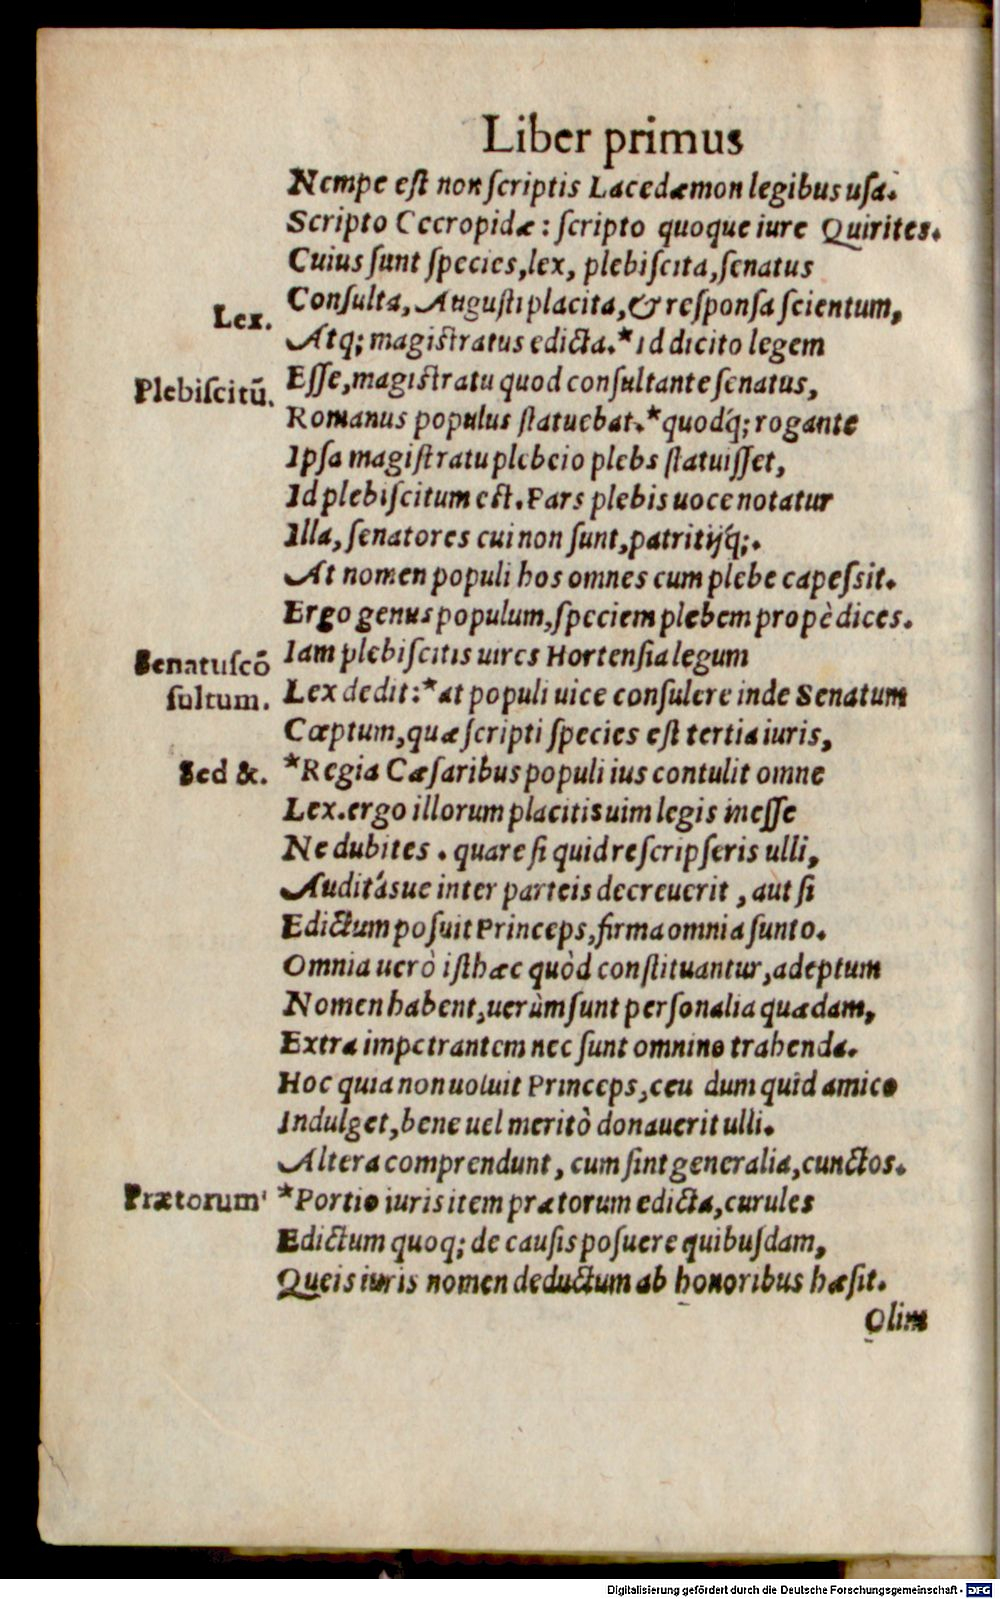 Liber primus
Nempe est non scriptis Lacedæmon legibus usa.
Scripto Cecropidæ: scripto quoque iure Quirites.
Cuius sunt species, lex, plebiscita, senatus
Consulta, Augusti placita, & responsa scientum,
Lex.
Atq; magistratus edicta.* id dicito legem
Plebiscitū.
Esse, magistratu quod consultante senatus,
Romanus populus statuebat.* quodq́; rogante
Ipsa magistratu plebeio plebs statuisset,
Id plebiscitum est. Pars plebis uoce notatur
Illa, senatores cui non sunt, patritijq́;.
At nomen populi hos omnes cum plebe capessit.
Ergo genus populum, speciem plebem propè dices.
Senatuscō
Iam plebiscitis uires Hortensia legum
sultum.
Lex dedit:* at populi uice consulere inde Senatum
Cœptum, quæ scripti species est tertia iuris,
Sed &.
*Regia Cæsaribus populi ius contulit omne
Lex. ergo illorum placitis uim legis inesse
Ne dubites. quare si quid rescripseris ulli,
Auditásue inter parteis decreuerit, aut si
Edictum posuit Princeps, firma omnia sunto.
Omnia uerò isthæc quòd constituantur, adeptum
Nomen habent, uerùm sunt personalia quædam,
Extra impetrantem nec sunt omnino trahenda.
Hoc quia non uoluit Princeps, ceu dum quid amico
Indulget, bene uel meritò donauerit ulli.
Altera comprendunt, cum sint generalia, cunctos.
Prætorum
*Portio iuris item prætorum edicta, curules
Edictum quoq; de causis posuere quibusdam,
Queis iuris nomen deductum ab honoribus hæsit.
Olim
Digitalisierung gefördert durch die Deutsche Forschungsgemeinschaft - DFG